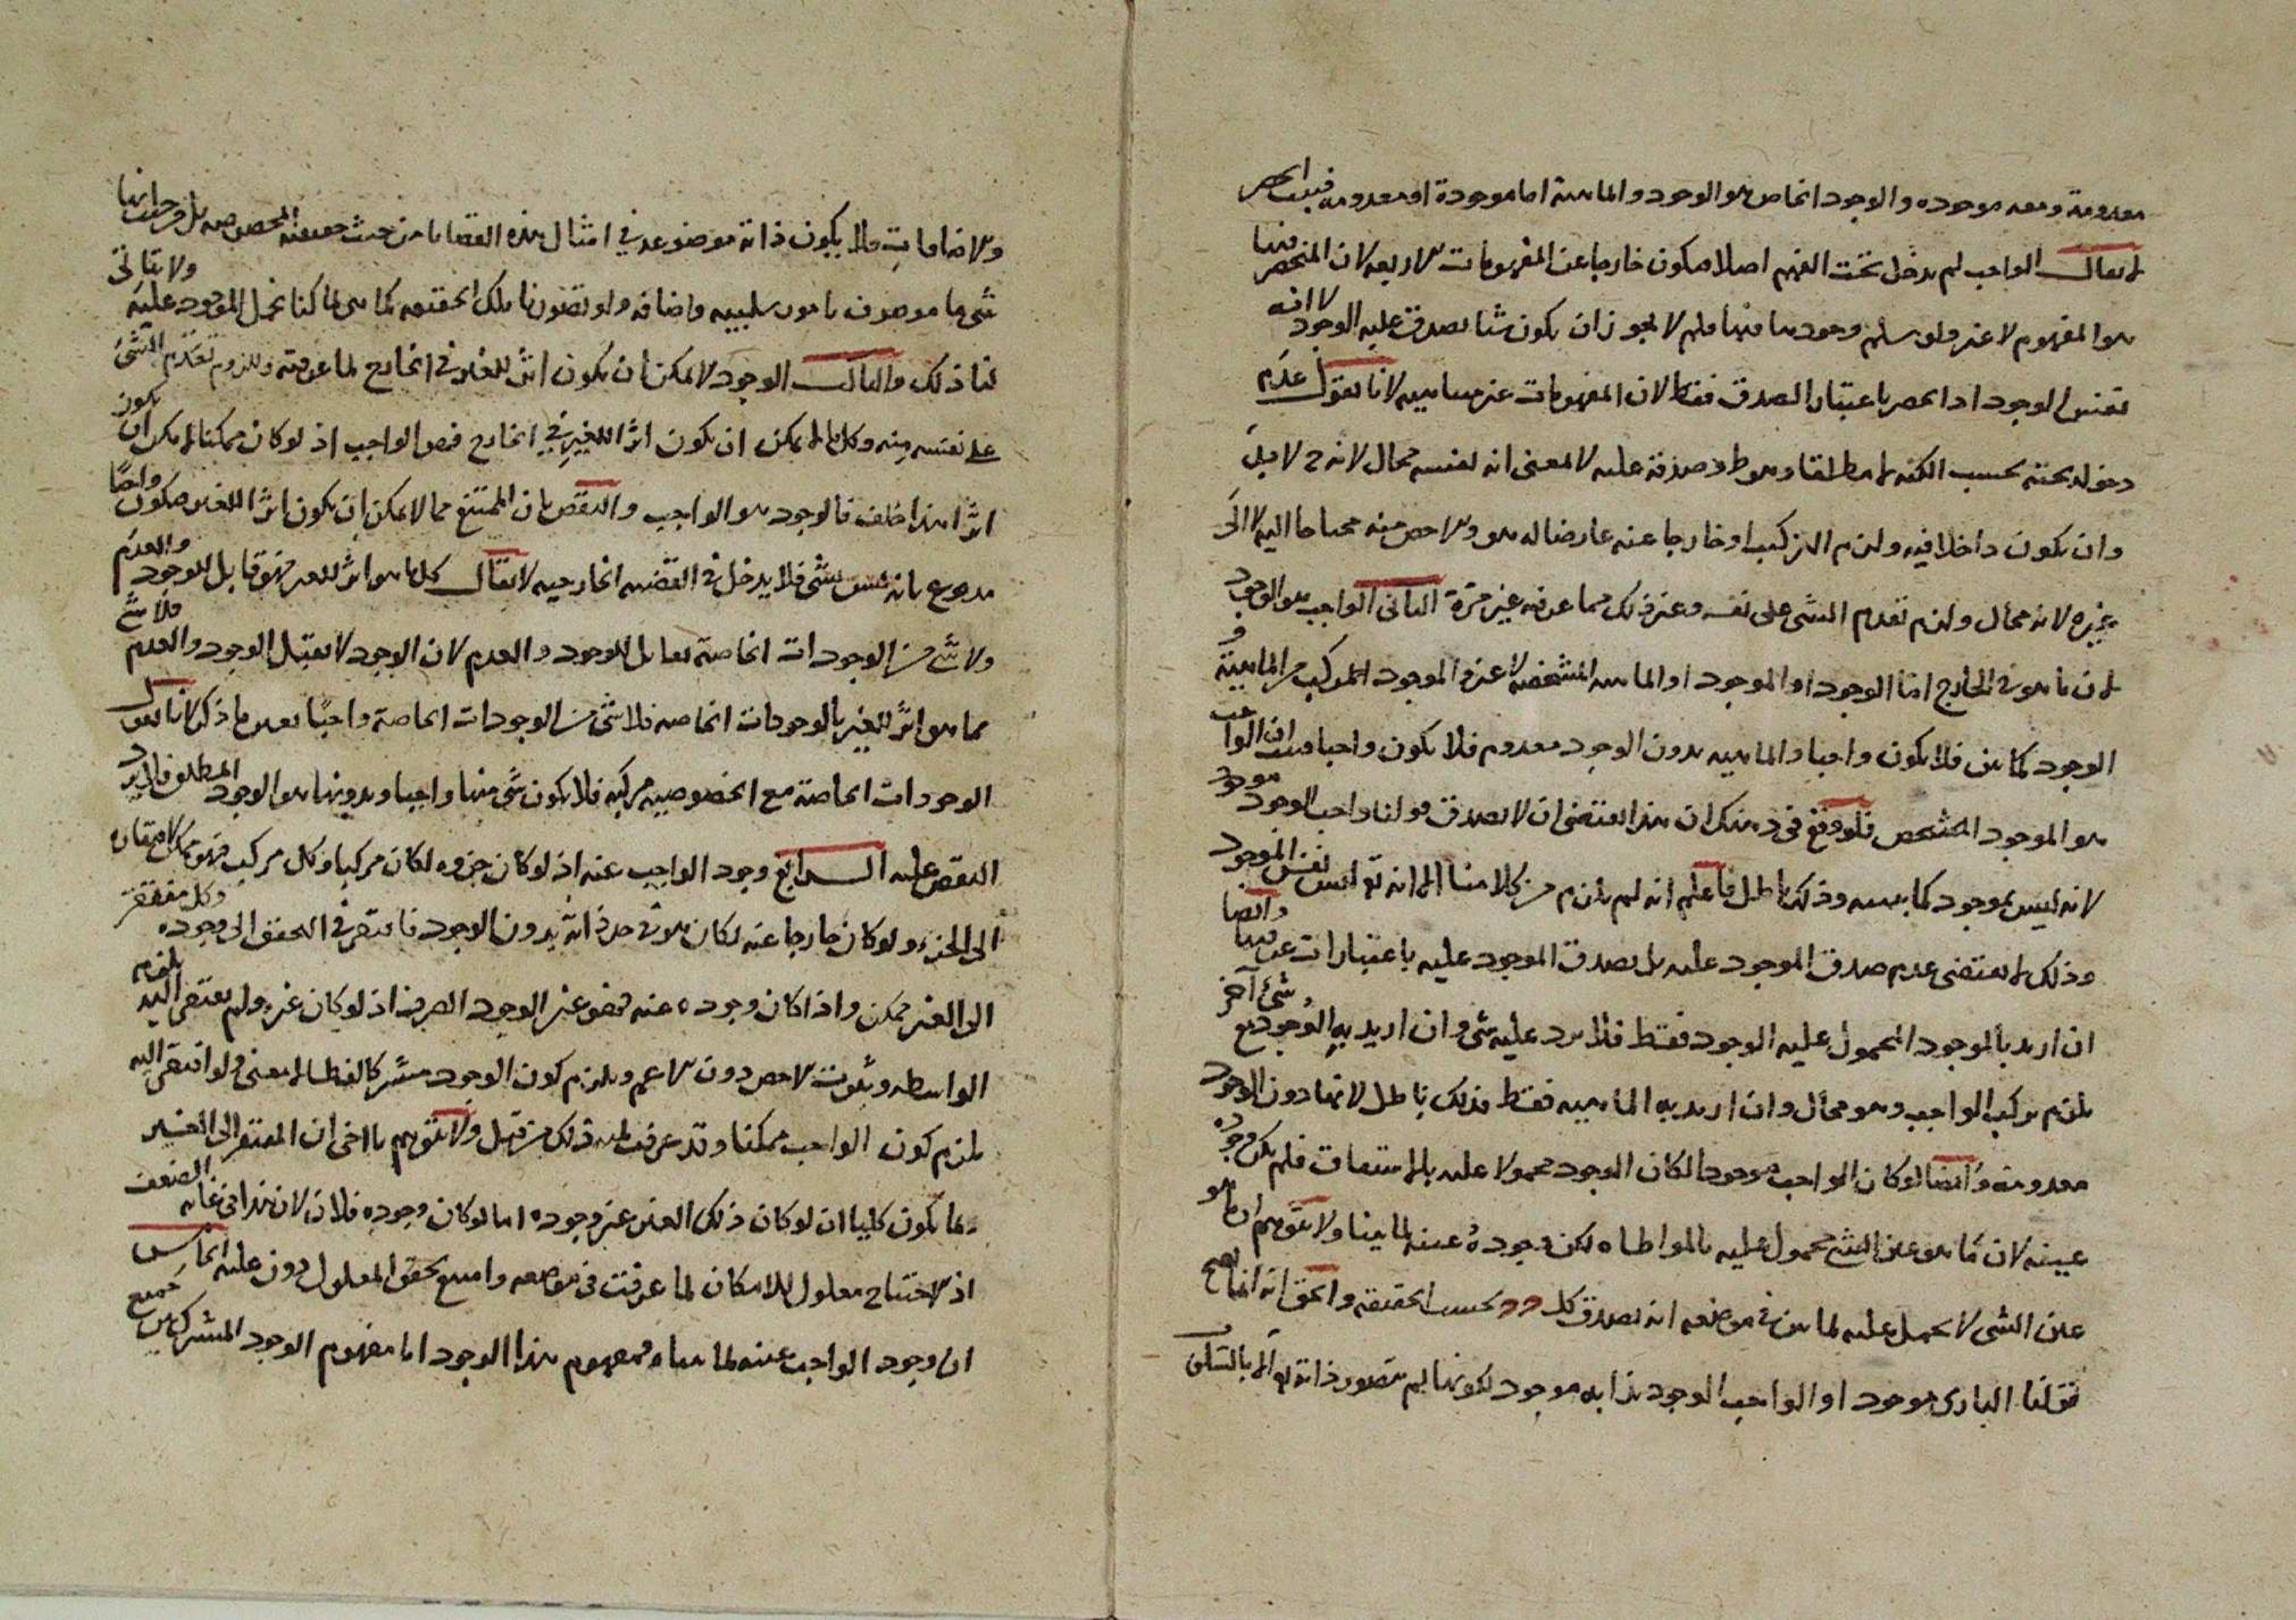 معدومة ومعه موجوده والوجود الخاص هو الوجود والماهية اما موجودة او معدومه فيثبت الحصر
لا يقال الواجب لم يدخل تحت الفهم اصلا فيكون خارجا عن المفهومات الاربعه لان المنحصر فيها
هو المفهوم لا غير ولو سلم وجوب فلم لا يجوز ان يكون شيئا يصدق عليه الوجود لا انه
نفس الوجود اذ الحصر باعتبار الصدق فقط لان المفهومات غير متباينه لانا نقول عدم
دخوله تحته بحسب الكنه لا مطلقا وهو ط وصدقه عليه لا بمعنى انه نفسه محال لانه ح لا بد
وان يكون داخلا فيه ولزم التركيب او خارجا عنه عارضا له هو والاخص منه محتاجا اليه لا الى
غيره لانه محال ولزم تقدم الشى على نفسه وغير ذلك مما عرفته غير مرة الثانى الواجب هو الوجود
لان ما هو فى الخارج اما الوجود او الموجود او الماهيه المشخصه لا غير والموجود المركب من الماهية و
الوجود كما بين فلا يكون واجبا والماهيه بدون الوجود معدوم فلا يكون واجبا فثبت ان الواجب
هو الموجود المشخص فلو وقع فى ذهنك ان هذا يقتضى ان لا يصدق قولنا واجب الوجود موجود
لانه ليس بموجود كما بينته وذلك باطل فاعلم انه لم يلزم من كلامنا الا انه تع ليس نفس الموجود
وذلك لا يقتضى عدم صدق الموجود عليه بل يصدق الموجود عليه باعتبارات عرفتها وايضا
ان اريد بالموجود المحمول عليه الوجود فقط فلا يرد عليه شى وان اريد به الوجود مع شئ آخر
يلزم تركب الواجب وهو محال وان اريد به الماهيه فقط فذلك باطل لانها دون الوجود
معدومة وايضا لو كان الواجب موجودا لكان الوجود محمولا عليه بالاشتقاق فلم يكن وجوده
عينه لان ما هو عين الشئ محمول عليه بالمواطاه لكن وجوده عينه لما بينا ولا تتوهم ان ما هو
عين الشى لا يحمل عليه لما بين فى موضعه انه يصدق كل بحسب الحقيقه والحق انه انما يصح
قولنا البارى موجود او الواجب الوجود بذاته موجود لكونها لم تتصور ذاته تع الا بالسلوب
والاضافات والا يكون ذاته موضوعه فى امثال هذه القضايا من حيث حقيقته المخصوصه بل من حيث انها
شى ما موصوف بامور سلبيه واضافه ولو تصورنا تلك الحقيقه كما هى لما كنا نحمل الموجود عليه ولا يتاتى
لنا ذلك والثالث الوجود لا يمكن ان يكون اثر للغير فى الخارج لما عرفته وللزوم تقدم الشئ
على نفسه منه وكل ما لا يمكن ان يكون اثرا للغير فى الخارج فهو الواجب اذ لو كان ممكنا لامكن ان يكون
اثرا هذا خلف فالوجود هو الواجب والنقض بان الممتنع مما لا يمكن ان يكون اثرا للغير فيكون واجبًا
مدفوع بانه ليس بشئ فلا يدخل فى القضيه الخارجيه لا يقال كل ما هو اثر للغير فهو قابل للوجود والعدم
ولا شئ من الوجودات الخاصة بقابل للوجود والعدم لان الوجود لا يقبل الوجود والعدم فلا شئ
مما هو اثر للغير بالوجودات الخاصه فلا شئ من الوجودات الخاصة واجبًا بعين ما ذكر لانا نقول
الوجودات الخاصة مع الخصوصيه مركبه فلا يكون شئ منها واجبا وبدونها هو الوجود المطلق فلا يرد
النقض عليه الرابع وجود الواجب عينه اذ لو كان جزوه لكان مركبا وكل مركب فهو ممكن لافتقاره
الى الجزء ولو كان خارجا عنه لكان هو فى حد ذاته بدون الوجود فافتقر فى التحقق الى وجوده وكل مفتقر
الى الغير ممكن واذا كان وجوده عينه فهو عين الوجود الصرف اذ لو كان غيره ولم يفتقر اليه يلزم
الواسطه وثبوت الاخص دون الاعم ويلزم كون الوجود مشتركا لفظا لا معنى ولو افتقر اليه
يلزم كون الواجب ممكنا وقد عرفت لميه ذلك من قبل ولا تتوهم يا اخى ان المفتقر الى الغير
انما يكون كليا ان لو كان ذلك الغير غير وجوده اما لو كان وجوده فلا لان هذا فى غايه الضعف
اذ الاحتياج معلول للامكان لما عرفت فى موضعه وامتنع تحقق المعلول دون علته الخامس
ان وجود الواجب عينه لما بيناه فمفهوم هذا الوجود اما مفهوم الوجود المشترك بين جميع